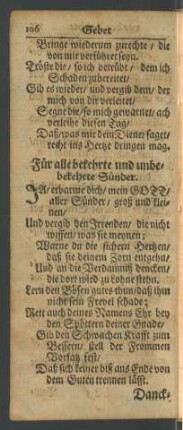 106 Gebet
Bringe wiederum zurechte / die
von mir verführet seyn.
Tröste die / so ich betrübt / dem ich
Schaden zubereitet /
Gib es wieder / und vergib dem / der
mich von dir verleitet /
Segne die / so mich gewarnet / ach
verleihe diesen Tag /
Daß / was mir dein Diener saget /
recht ins Hertze dringen mag.
Für alle bekehrte und unbe-
bekehrte Sünder.
JA / erbarme dich / mein GOTT /
aller Sünder / groß und klei-
nen /
Und vergib den Irrenden / die nicht
wissen / was sie meynen ;
Warne du die sichern Hertzen /
daß sie deinem Zorn entgehn /
Und an die Verdamniß dencken /
die dort wird zu lohne stehn.
Lern den Bösen gutes thun / daß ihn
nicht sein Frevel schade ;
Rett auch deines Namens Ehr bey
den Spöttern deiner Gnade /
Gib den Schwachen Krafft zum
Bessern / stell der Frommen
Vorsatz fest /
Daß sich keiner biß ans Ende von
dem Guten trennen läst.
Danck-